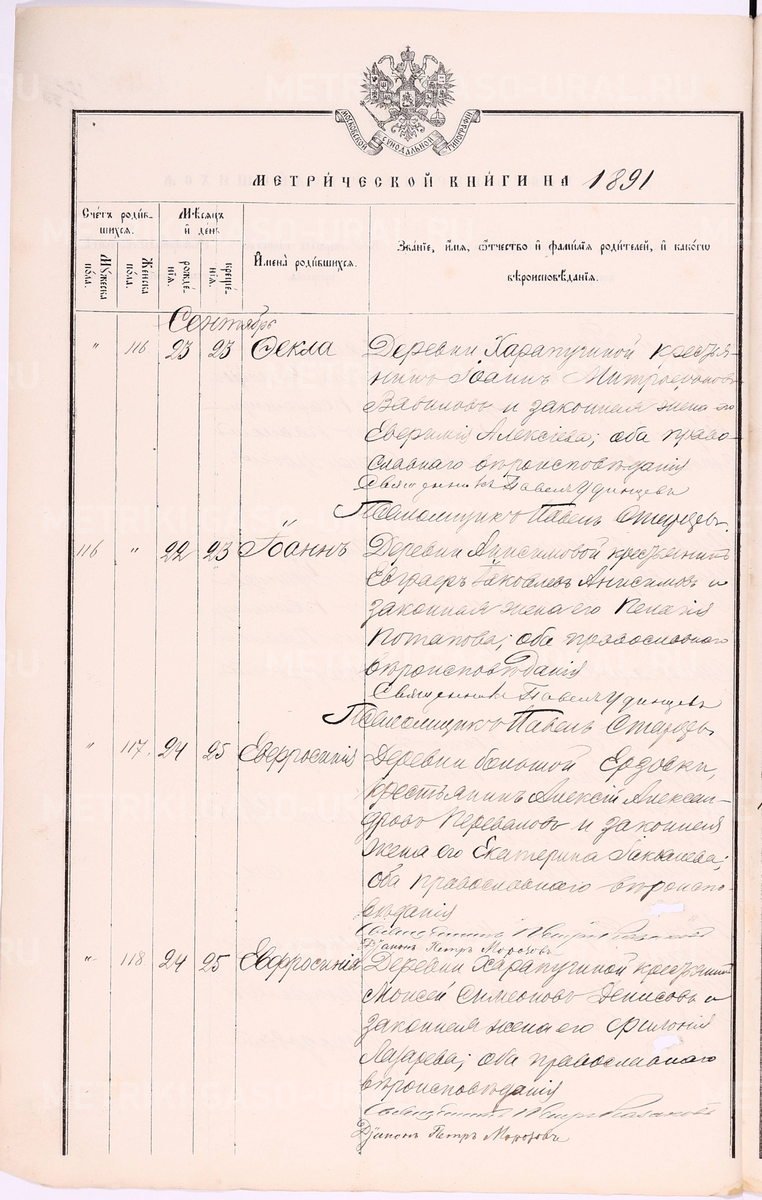 МОСКОВСКОЙ СѴНОДАЛЬНОЙ ТИПОГРАФІИ
МЕТРИ́ЧЕСКОЙ КНИ́ГИ НА 1891
Сче́тъ роди́вшихся.
Мѣ́сяцъ и҆ де́нь
И҆мена̀ роди́вшихся.
Зва́нїе, и҆́мя, ѻ҆́тчество и҆ фами́лїя роди́телей, и҆ како́гѡ
вѣроисповѣ́данїя.
Мꙋ́жеска по́ла.
Же́нска по́ла.
рожде́нїя.
креще́нїя.
Сентябрь
" 116 23 23 Ѳекла Деревни Харапугиной крестья-
нинъ Іоаннъ Митрофановъ
Вавиловъ и законная жена его
Евфимія Алексѣева; оба право-
славнаго вѣроисповѣданія
Священникъ Павелъ Удинцевъ
Псаломщикъ Павелъ Старцевъ.
116 " 22 23 Іоаннъ Деревни Анисимовой крестьянинъ
Евграфъ Іаковлевъ Анисимовъ и
законная жена его Пелагія
Потапова; оба православнаго
вѣроисповѣданія
Священникъ Павелъ Удинцевъ
Псаломщикъ Павелъ Старцевъ
" 117. 24 25 Евфросинія Деревни большой Ерзовки,
крестьянинъ Алексій Алексан-
дровъ Переваловъ и законная
жена его Екатерина Іаковлева;
оба православнаго вѣроиспо-
вѣданія
Священникъ Петръ
Діаконъ Петръ Морозовъ
" 118 24 25 Евфросинія Деревни Харапугиной крестьянинъ
Моисей Симеоновъ Денисовъ и
законная жена его
Лазарева; оба православнаго
вѣроисповѣданія
Священникъ Петръ
Діаконъ Петръ Морозовъ
METRIKI.GASO-URAL.RU